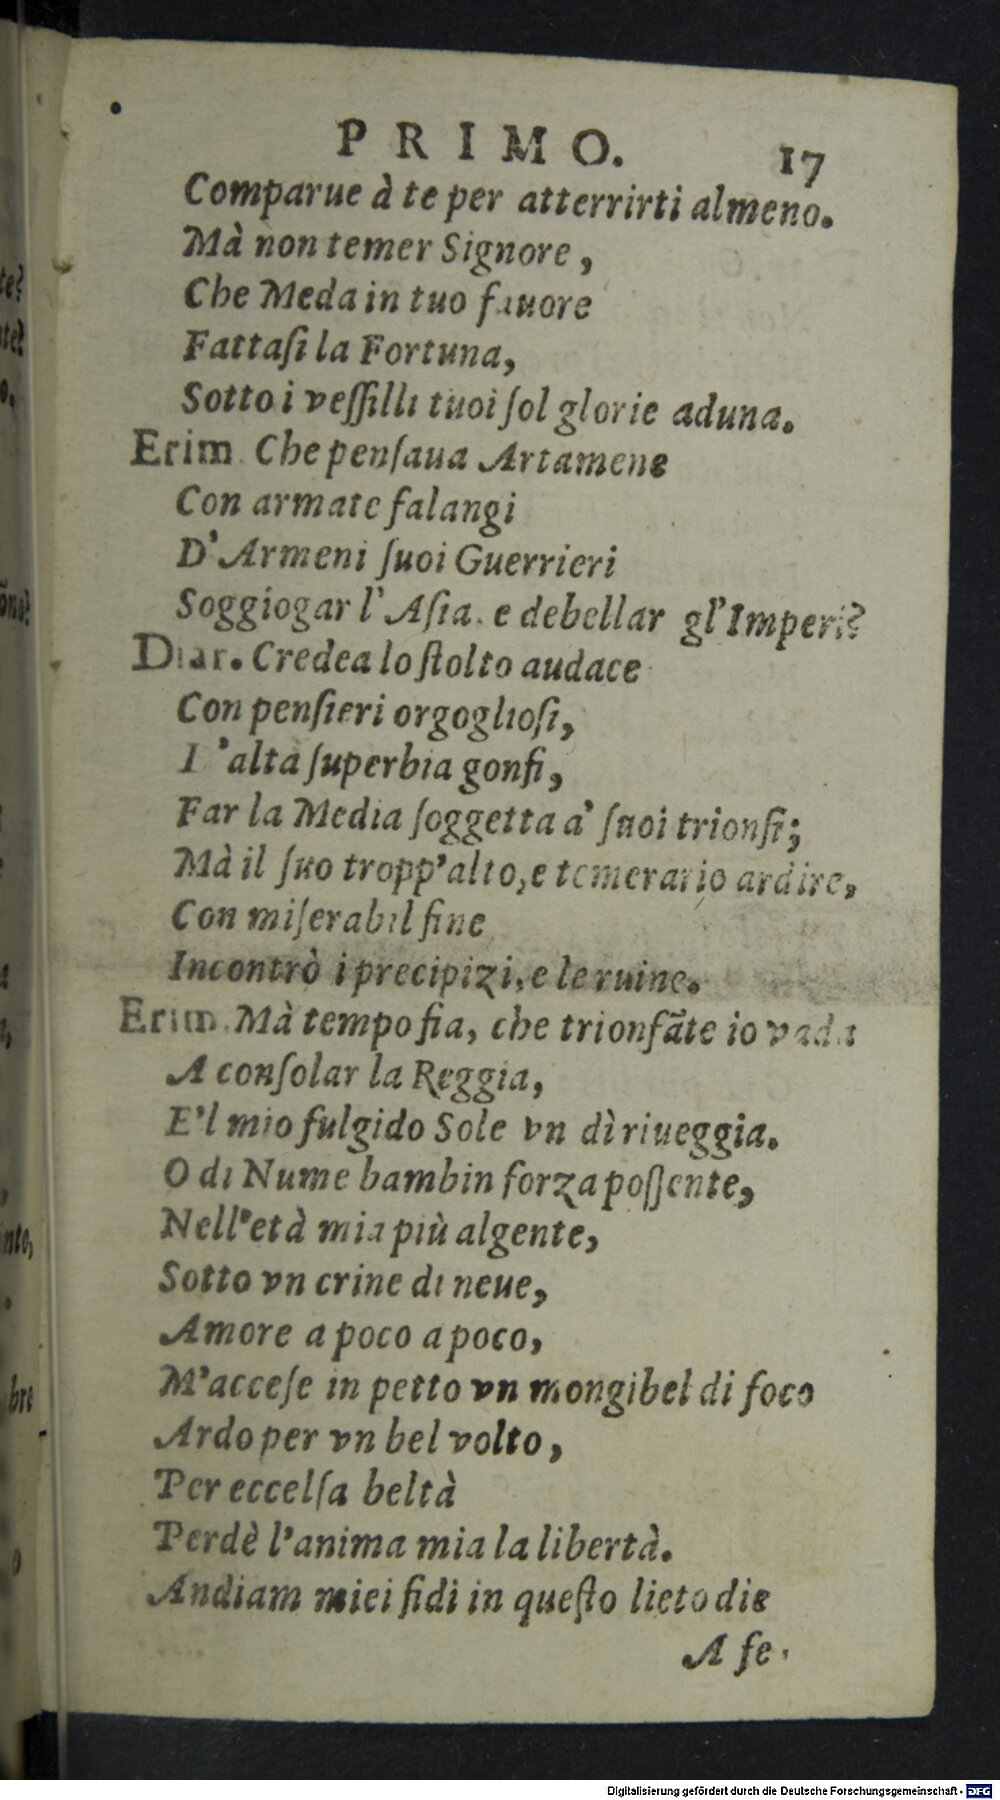 PRIMO. 17
Comparue à te per atterrirti almeno.
Mà non temer Signore,
Che Meda in tuo fauore
Fattaſi la Fortuna,
Sotto i veſſilli tuoi ſol glorie aduna.
Erim. Che penſaua Artamene
Con armate falangi
D'Armeni ſuoi Guerrieri
Soggiogar l'Aſia. e debellar gl'Imperi?
Diar. Credea lo ſtolto audace
Con penſieri orgoglioſi,
'alta ſuperbia gonfi,
Far la Media ſoggetta a' ſuoi trionfi;
Mà il ſuo tropp'alto, e temerario ardire,
Con miſerabil fine
Incontrò i precipizi, e le ruine.
Erim. Mà tempo fia, che trionfãte io vada
A conſolar la Reggia,
E'l mio fulgido Sole vn dì riueggia.
O di Nume bambin forza poſſente,
Nell'età mia più algente,
Sotto vn crine di neue,
Amore a poco a poco,
M'acceſe in petto vn mongibel di foco
Ardo per vn bel volto,
Per eccelſa beltà
Perdè l'anima mia la libertà.
Andiam miei fidi in queſto lieto die
A ſe.
te?
te?
o.
õno?
nto,
bre
o
Digitalisierung gefördert durch die Deutsche Forschungsgemeinschaft - DFG